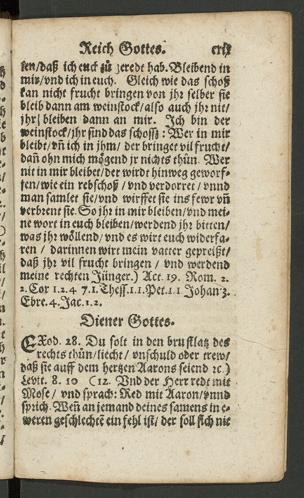 Reich Gottes. cxix
sen/daß ich euch zů geredt hab. Bleibend in
mir/vnd ich in euch. Gleich wie das schoß
kan nicht frucht bringen von jhr selber sie
bleib dann am weinstock/also auch jhr nit/
jhr bleiben dann an mir. Ich bin der
weinstock/jhr sind das schoss: Wer in mir
bleibt/vñ ich in jhm/ der bringet vil frucht/
dañ ohn mich mögend jr nichts thůn. Wer
nit in mir bleibet/der wirdt hinweg geworf-
fen/wie ein rebschoß/vnd verdorret/vnnd
man samlet sie/vnd wirfft sie ins fewr vñ
verbrent sie. So jhr in mir bleiben/vnd mei-
ne wort in euch bleiben/werdend jhr bitten/
was jhr wöllend/vnd es wirt euch widerfa-
ren / darinnen wirt mein vatter gepreißt/
daß jhr vil frucht bringen / vnd werdend
meine rechten Jünger.) Act. 19. Rom. 2.
2. Cor 1.2.4 7.1. Thess.1.1.Pet.1.1 Johan 3.
Ebre.4.Jac.1.2.
Diener Gottes.
EXod. 28. Du solt in den brustlatz des
rechts thůn/liecht/vnschuld oder trew/
daß sie auff dem hertzen Aarons seiend ꝛc.)
Levit. 8. 10 (12. Vnd der Herr redt mit
Mose / vnd sprach: Red mit Aaron/vnnd
sprich. Weñ an jemand deines samens in e-
weren geschlechtẽ ein fehl ist/ der soll sich nie